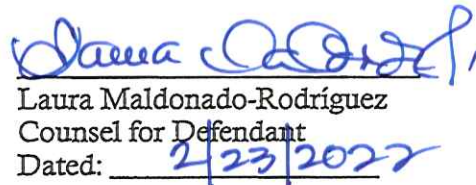 Laura Maldonado-Rodríguez
Counsel for Defendant
Dated: 2/23/2022